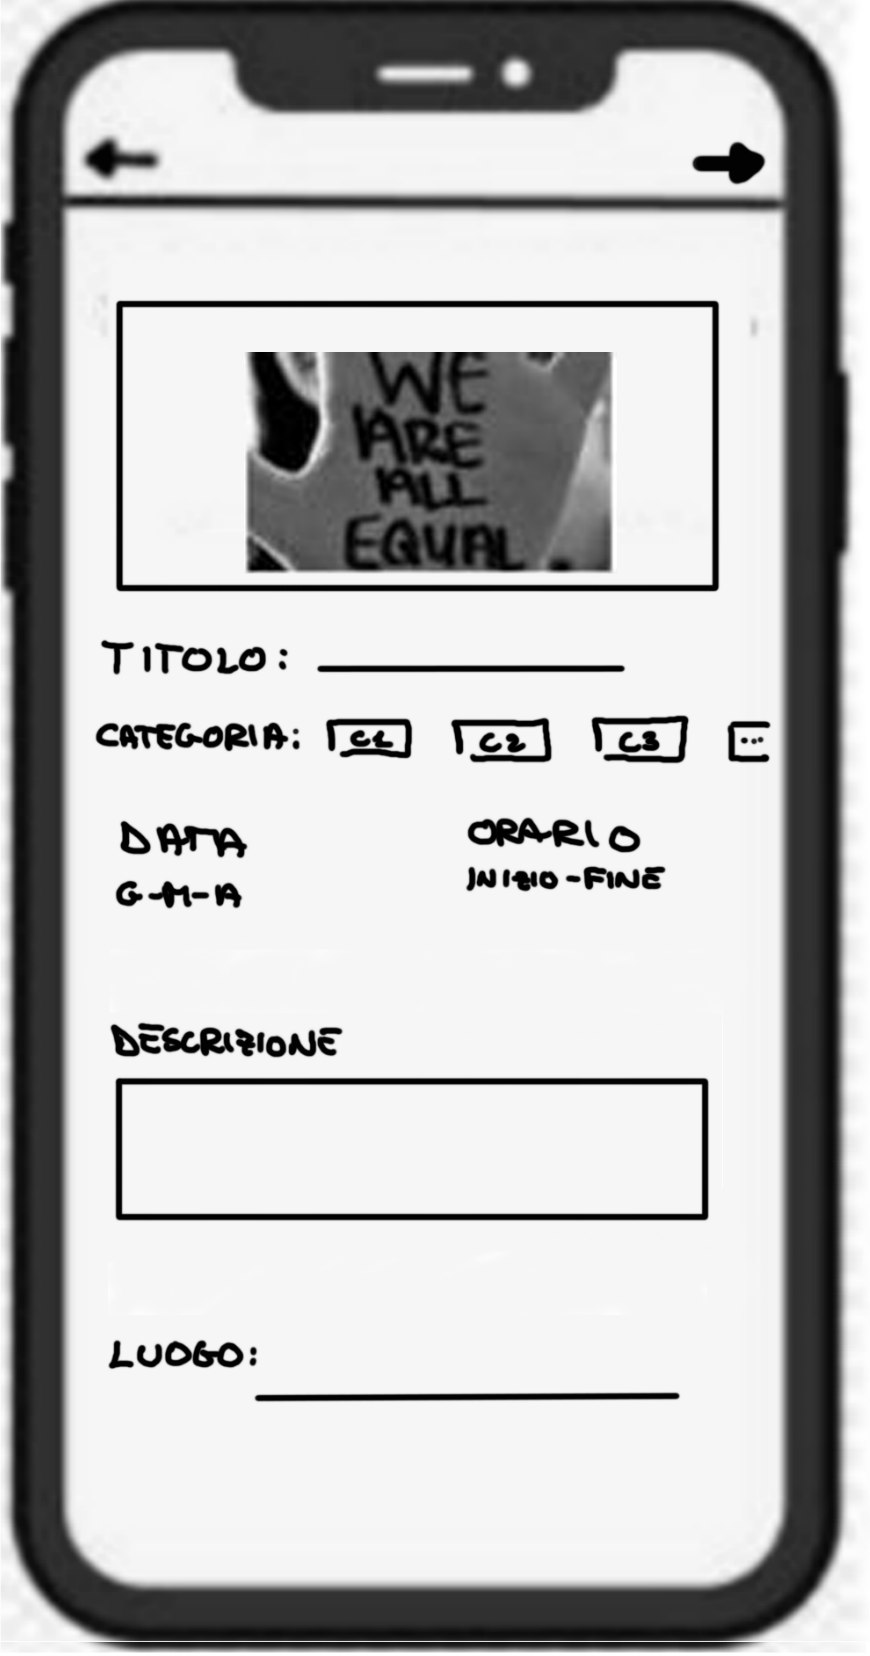 WE
ARE
ALL
EQUAL
TITOLO:
CATEGORIA: C1 C2 C3 ...
DATA ORARIO
G-M-A INIZIO-FINE
DESCRIZIONE
LUOGO: